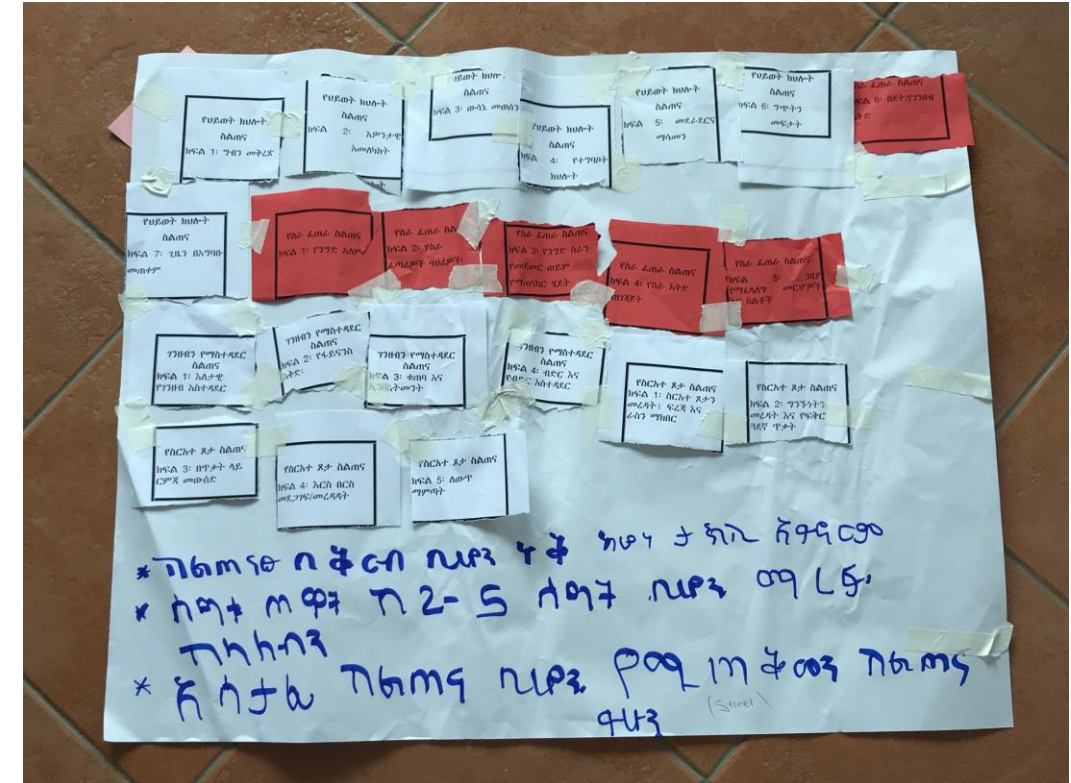 የህይወት ክህሎት
ስልጠና
ክፍል 1፡ ግብን መቅረጽ
የህይወት ክህሎት
ስልጠና
ክፍል 2፡ አዎንታዊ
አመለካከት
የህይወት ክህሎት
ስልጠና
ክፍል 3፡ ውሳኔ መወሰን
የህይወት ክህሎት
ስልጠና
ክፍል 4፡ የተግባቦት
ክህሎት
የህይወት ክህሎት
ስልጠና
ክፍል 5፡ መደራደርና
ማሳመን
የህይወት ክህሎት
ስልጠና
ክፍል 6፡ ግጭትን
መፍታት
ስራ ፈጠራ ስልጠና
ክፍል 6፡
የህይወት ክህሎት
ስልጠና
ክፍል 7፡ ጊዜን በአግባቡ
መጠቀም
የስራ ፈጠራ ስልጠና
ክፍል 1፡ የንግድ አለም
የስራ ፈጠራ ስል
ክፍል 2፡ የስራ
ፈጣሪዎች ባህሪዎች
የስራ ፈጠራ ስልጠና
ክፍል 3፡ የንግድ ስራን
የመጀመር ወይም
የማጠናከር ሂደት
የስራ ፈጠራ ስልጠና
ክፍል 4፡ የስራ እቅድ
ማዘጋጀት
የስራ ፈጠራ ስልጠና
ክፍል 5፡ ገበያ
የማፈላለግ መርሆዎች
ስልቶች
ገንዘብን የማስተዳደር
ስልጠና
ክፍል 1፡ እለታዊ
የገንዘብ አስተዳደር
ገንዘብን የማስተዳደር
ስልጠና
ክፍል 2፡ የፋይናንስ
እቅድ፡
ገንዘብን የማስተዳደር
ስልጠና
ክፍል 3፡ ቁጠባ እና
ኢንቨስትመንት
ገንዘብን የማስተዳደር
ስልጠና
ክፍል 4፡ ብድር እና
የብድር አስተዳደር
የስርአተ ጾታ ስልጠና
ክፍል 1፡ ስርአተ ጾታን
መረዳት፤ ፍረጃ እና
ራስን ማክበር
የስርአተ ጾታ ስልጠና
ክፍል 2፡ ግንኙነትን
መረዳት እና የፍቅር
ጓደኛ ጥቃት
የስርአተ ጾታ ስልጠና
ክፍል 3፡ በጥቃት ላይ
ርምጃ መውሰድ
የስርአተ ጾታ ስልጠና
ክፍል 4፡ እርስ በርስ
መደጋገፍ/መረዳዳት
የስርአተ ጾታ ስልጠና
ክፍል 5፡ ለውጥ
ማምጣት
* ስልጠናው በቅርብ ቢሆን
* ሰዓት ጠዋት ከ 2-5 ሰዓት ቢሆን
*  ስልጠና ቢሆን የሚጠቅመን ስልጠና
ቢሆን